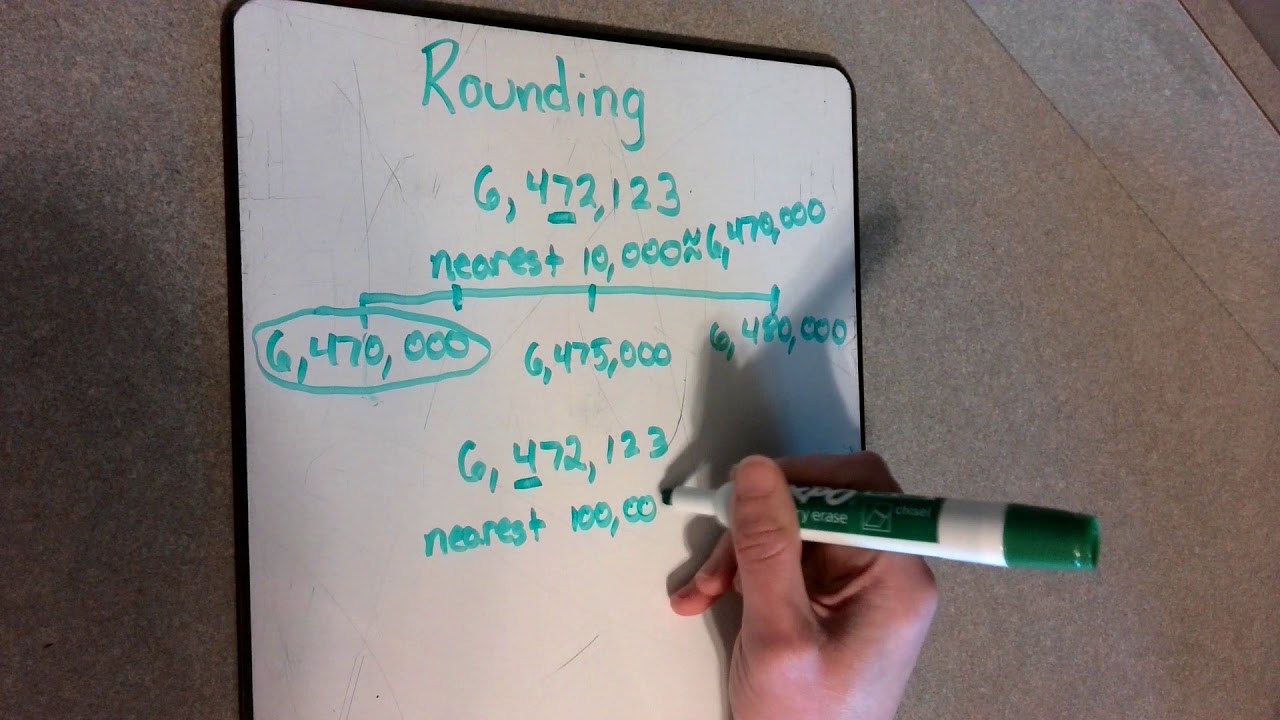 Rounding
6,472,123
nearest 10,000≈6,470,000
6,470,000 6,475,000 6,480,000
6,472,123
nearest 100,00
ry erase chisel